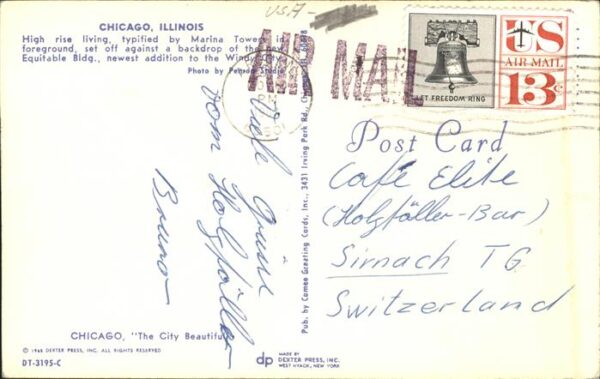 USA
CHICAGO, ILLINOIS
High rise living, typified by Marina Towers in
foreground, set off against a backdrop of the new
Equitable Bldg., newest addition to the Windy City.
Photo by Studio
AIR MAIL
LET FREEDOM RING
US
AIR MAIL
13c
Viele Grüsse
vom Holzfäller
Bruno
Pub. by Cameo Greeting Cards, Inc., 3431 Irving Park Rd., Chicago, Ill. 60618
Post Card
Café Elite
(Holzfäller-Bar)
Sirnach TG
Switzerland
CHICAGO, "The City Beautiful"
© 1968 DEXTER PRESS, INC. ALL RIGHTS RESERVED
DT-3195-C
dp
MADE BY
DEXTER PRESS, INC.
WEST NYACK, NEW YORK